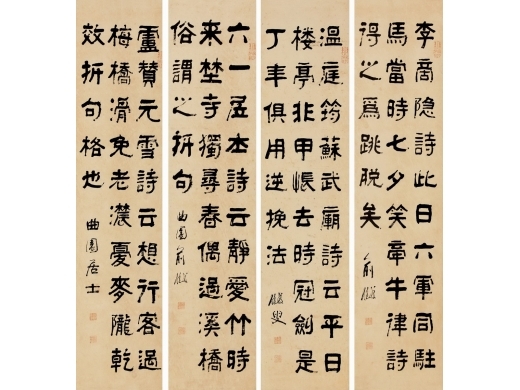 李商隱詩此日六軍同駐
馬當時七夕笑牽牛律詩
得之為跳脫矣
俞樾
溫庭筠蘇武廟詩云平日
樓亭非甲帳去時冠劍是
丁年俱用逆挽法
樾叟
六一居士詩云靜愛竹時
来埜寺獨尋春偶過溪橋
俗謂之折句
曲園俞樾
盧贊元雪詩云想行客過
梅橋滑免老濃憂麥隴乾
效折句格也
曲園居士